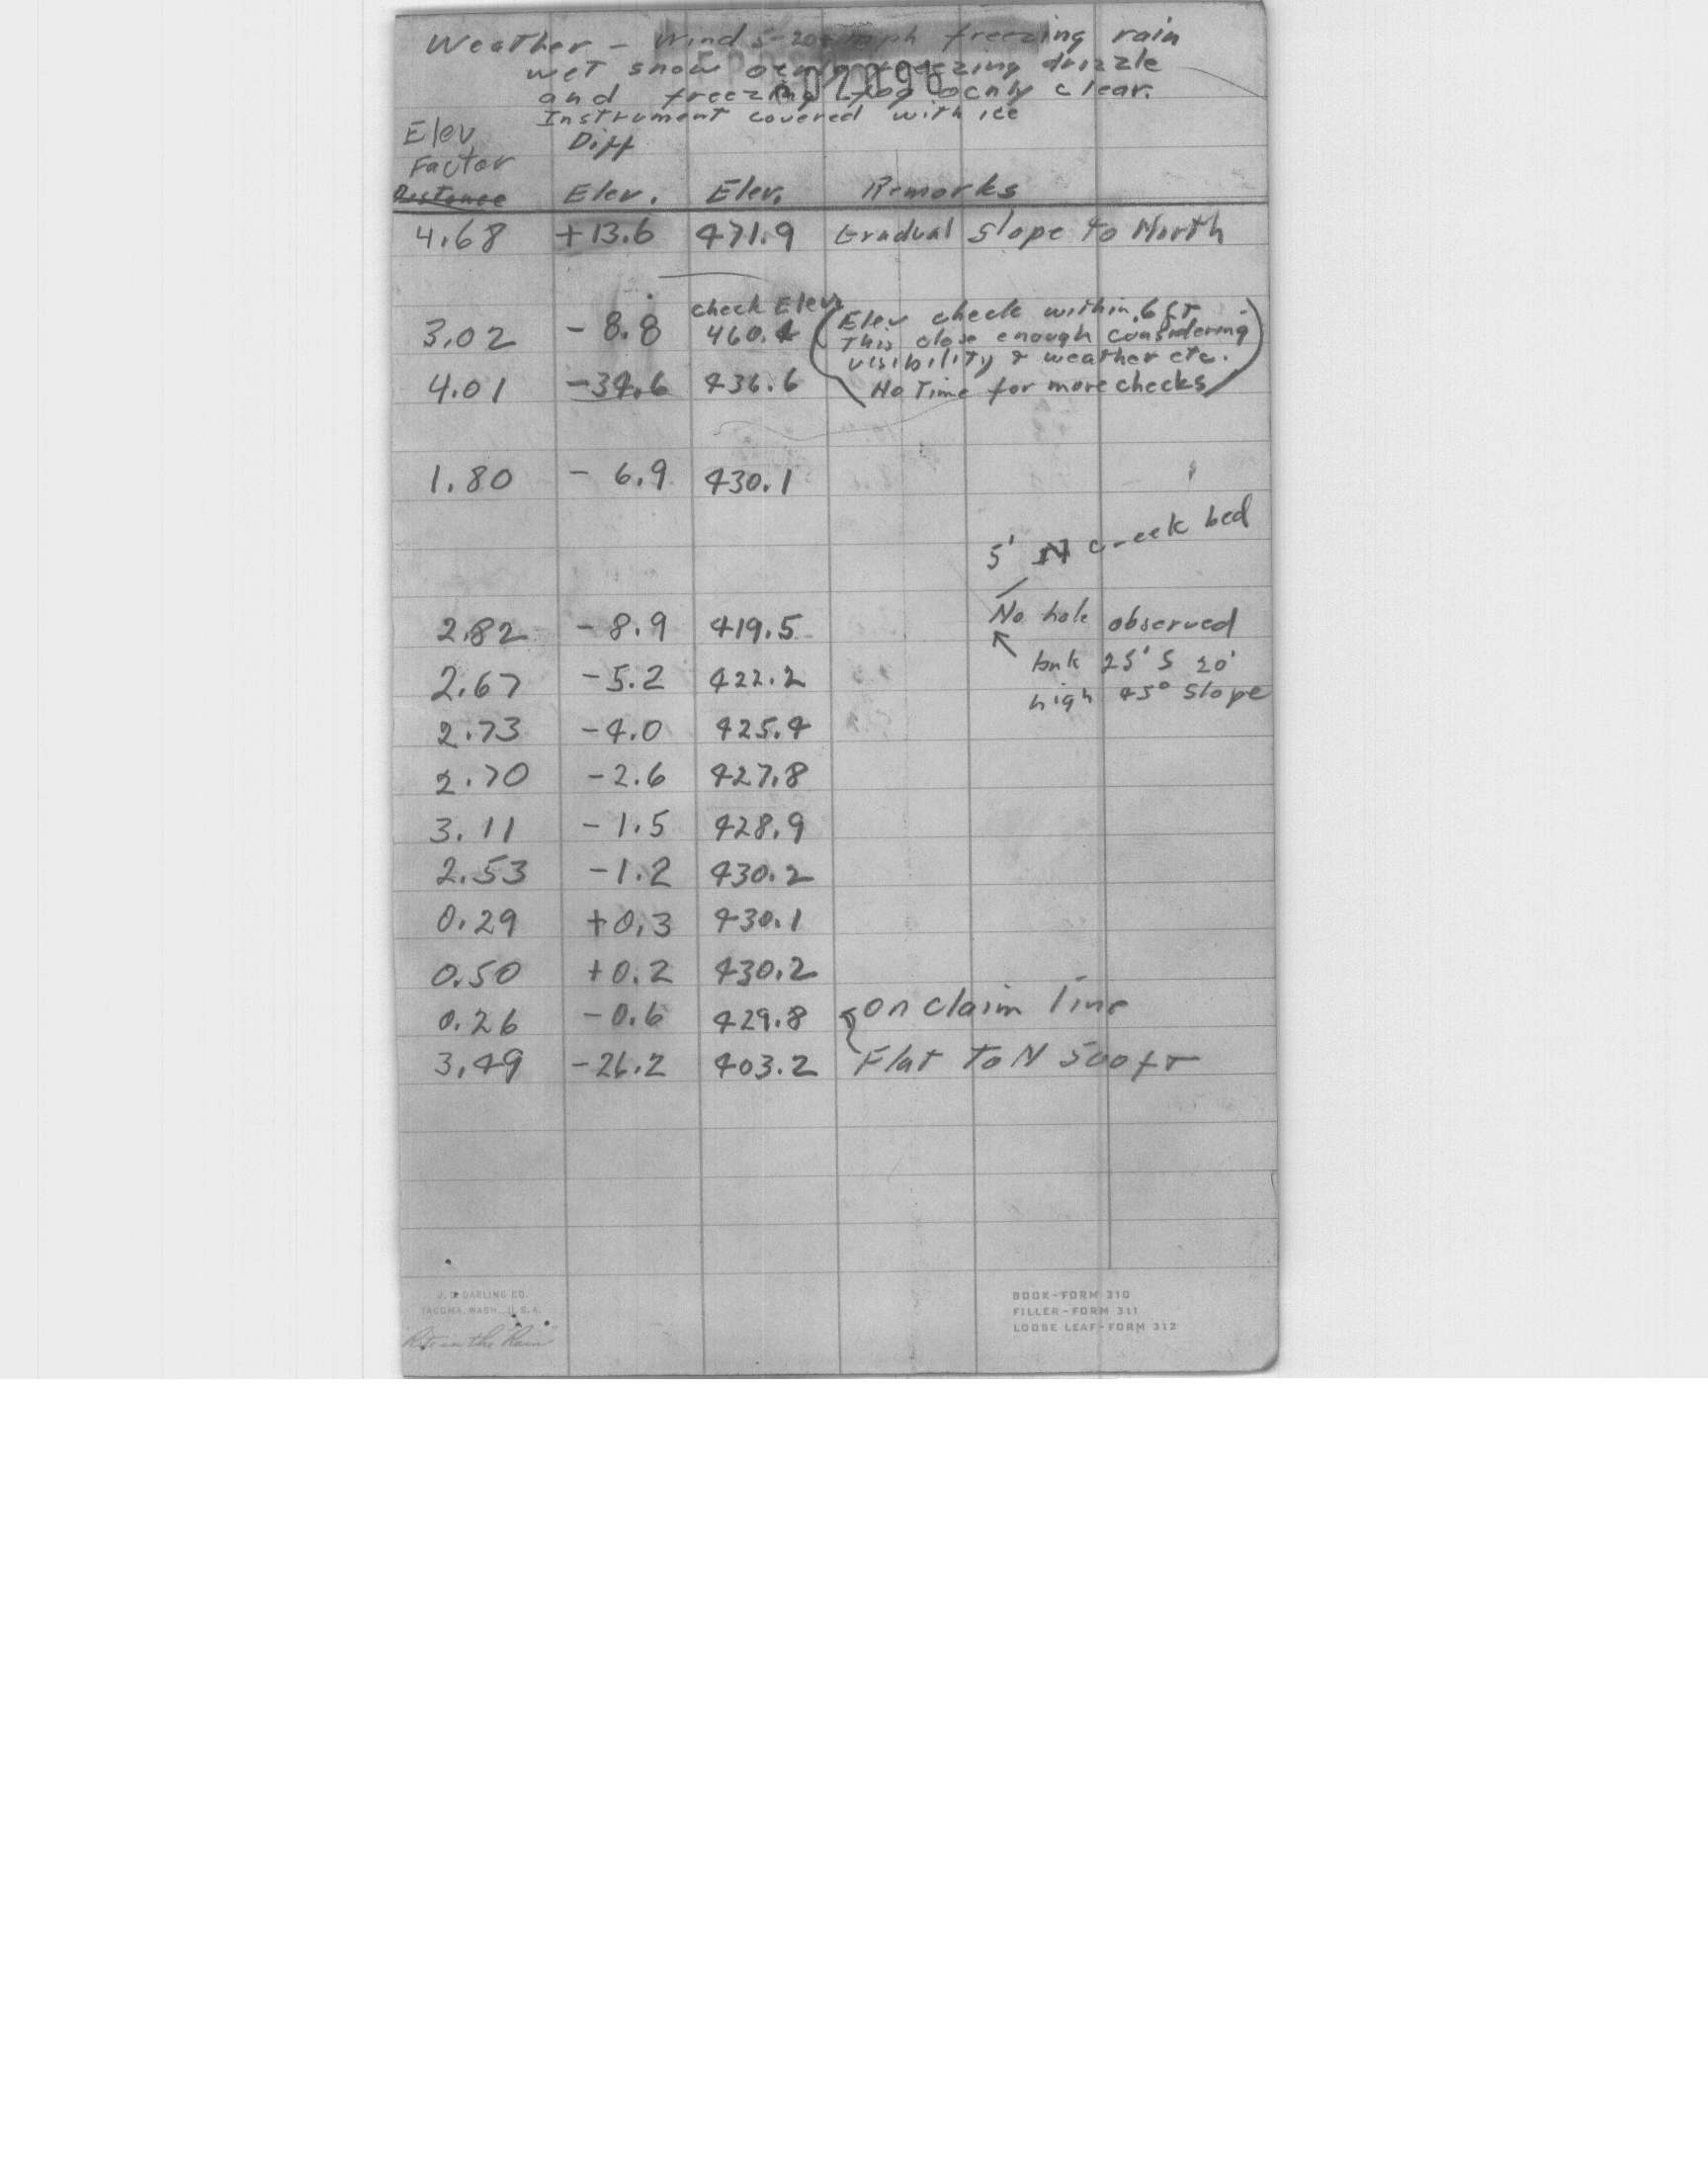 Weather - Wind 5-20+ mph freezing rain
wet snow ocn freezing drizzle
and freezing fog ocnly clear.
Instrument covered with ice
Elev Diff
Factor
Distance Elev. Elev. Remarks
4.68 +13.6 471.9 Gradual slope to North
check Elev.
3.02 - 8.8 460.4 (Elev check within .6 ft
This close enough considering
visibility & weather etc.
4.01 -34.6 436.6 No Time for more checks)
1.80 - 6.9 430.1
5' N creek bed
2.82 - 8.9 419.5 No hole observed
2.67 -5.2 422.2 bnk 25' S 20'
high 45° slope
2.73 -4.0 425.4
2.70 -2.6 427.8
3.11 -1.5 428.9
2.53 -1.2 430.2
0.29 +0.3 430.1
0.50 +0.2 430.2
0.26 -0.6 429.8 on claim line
3.49 -26.2 403.2 Flat To N 500 ft
J. L. DARLING CO.
TACOMA, WASH., U.S.A.
"Rite in the Rain"
BOOK-FORM 310
FILLER-FORM 311
LOOSE LEAF-FORM 312